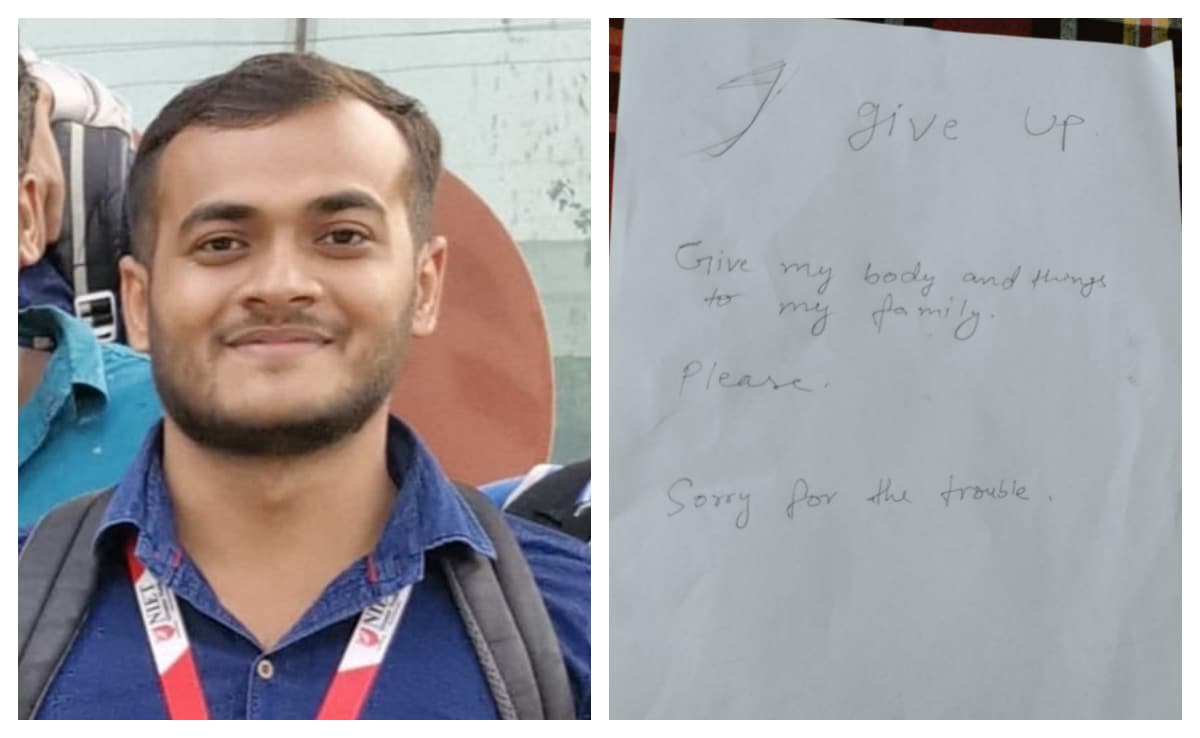 NIET
I give up.
Give my body and things
to my family.
Please.
Sorry for the trouble.